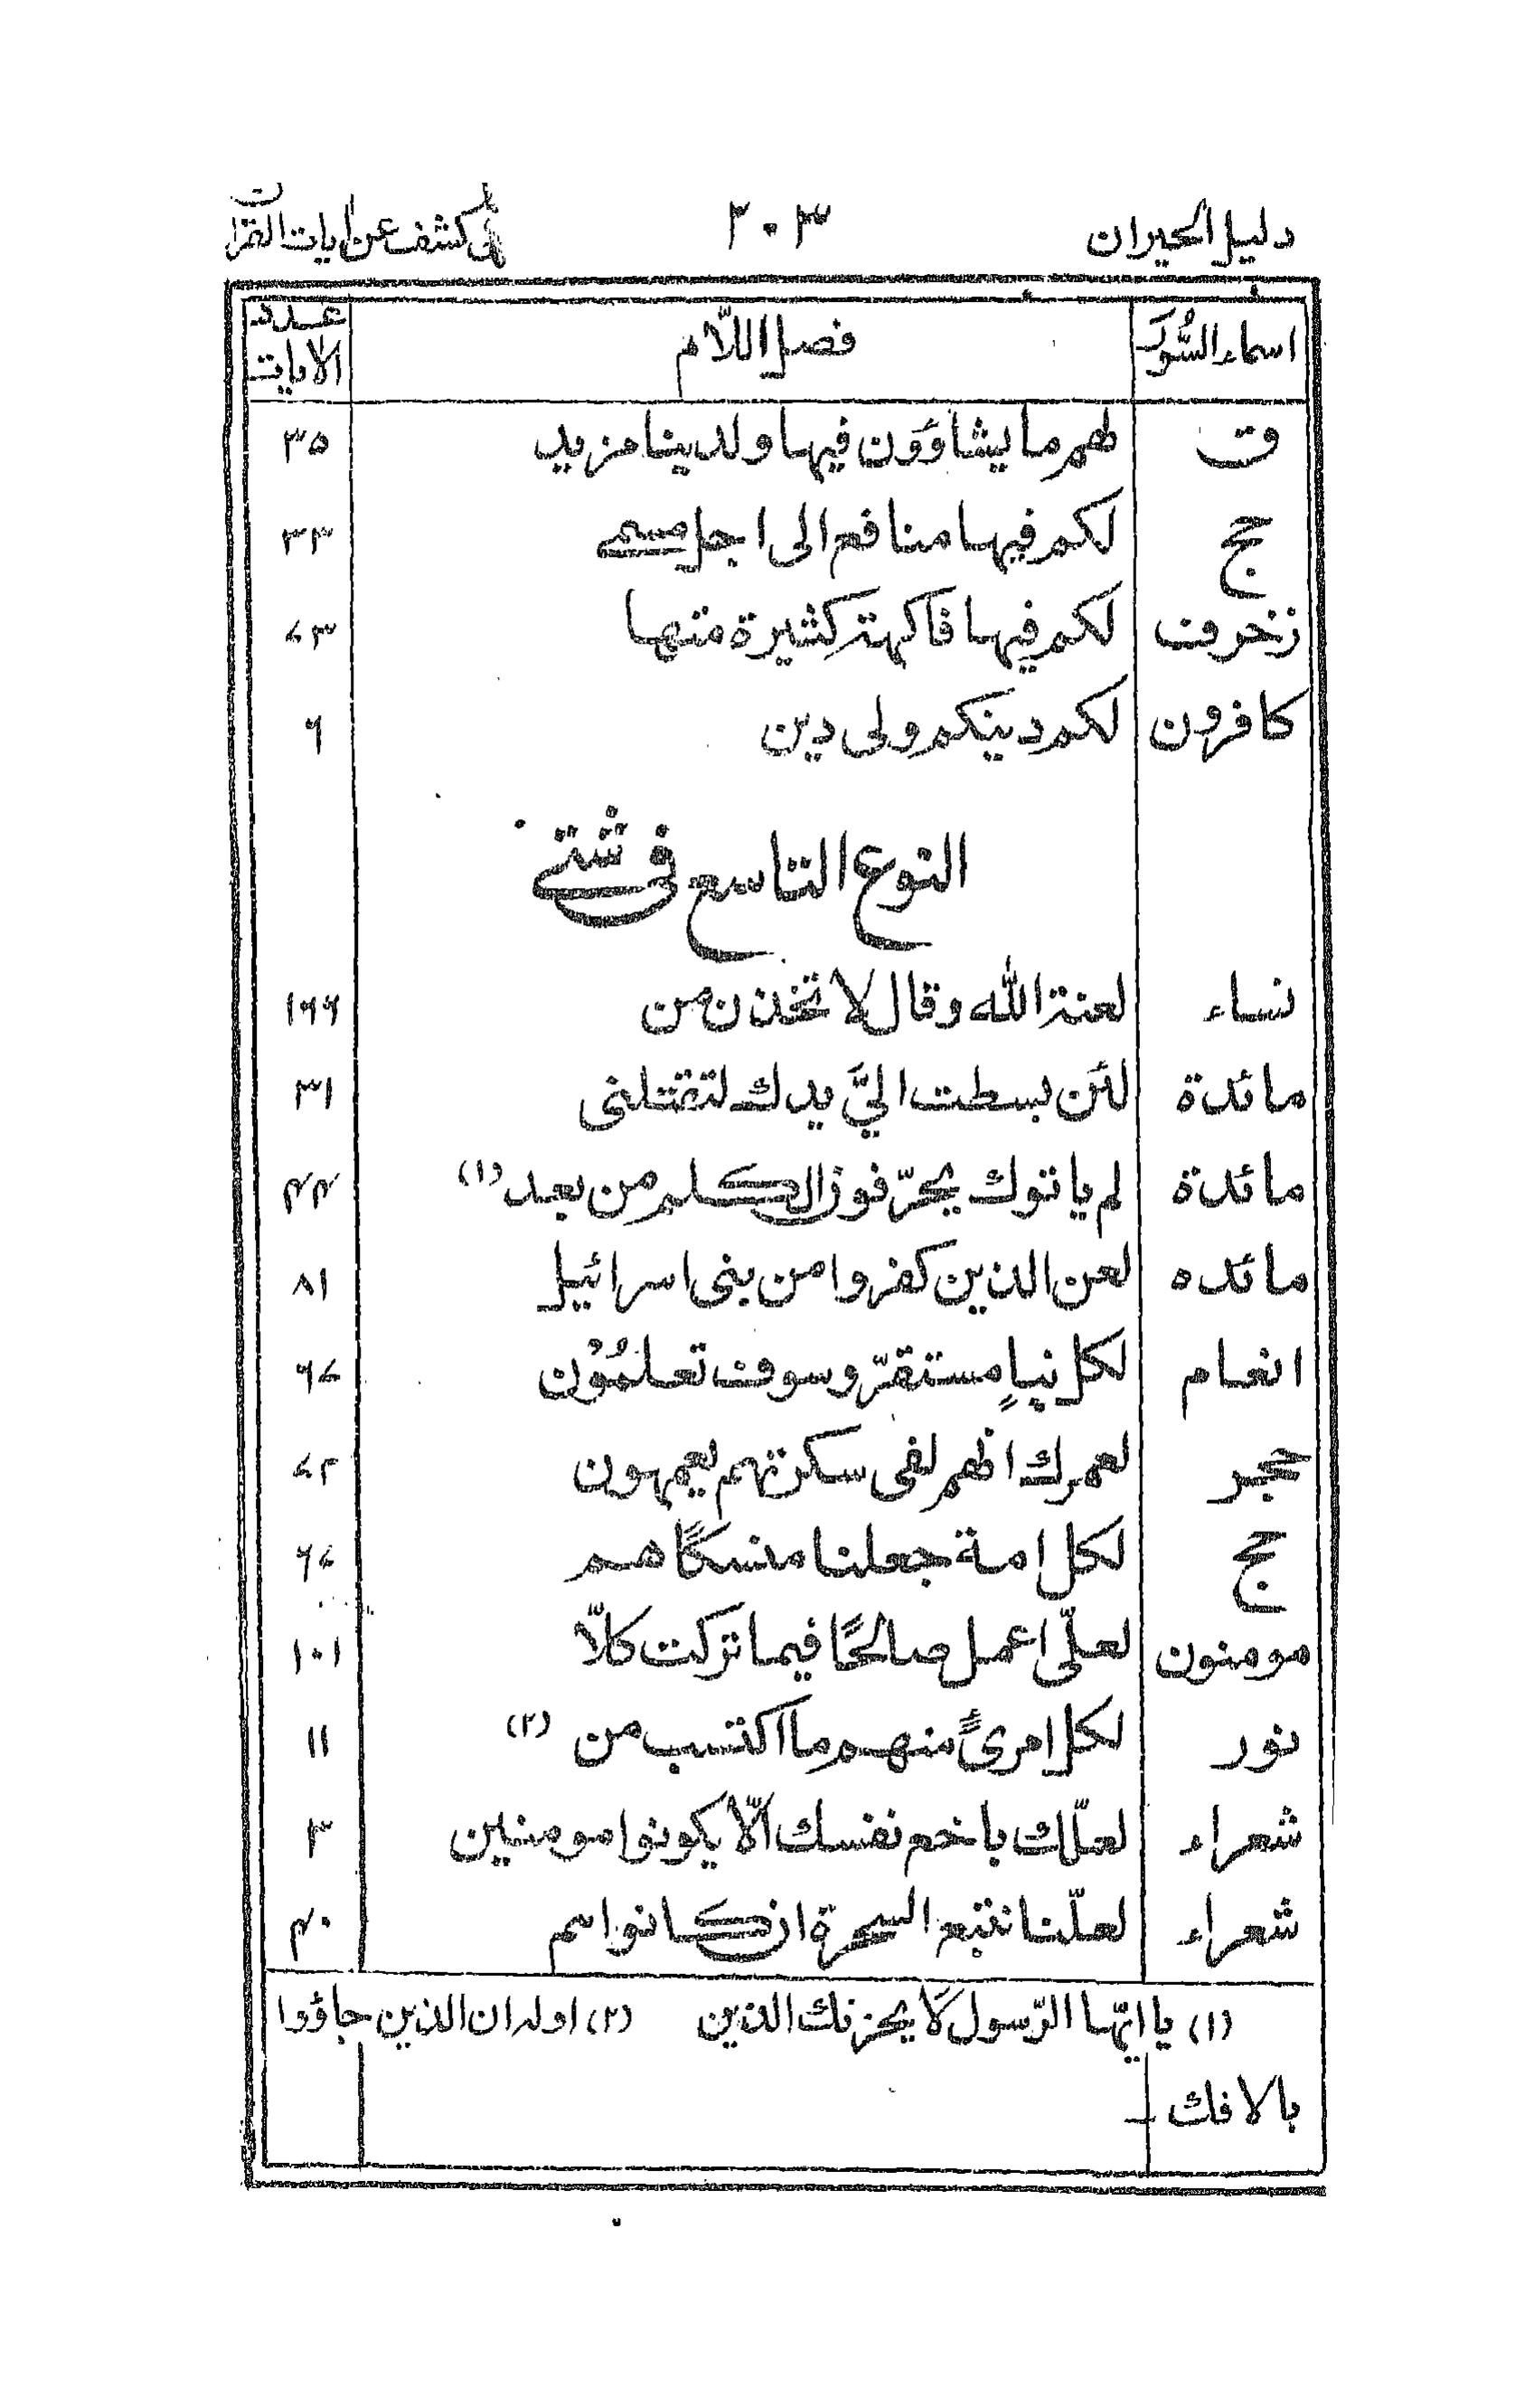 دليل الحيران ٢٠٣ في الكشف عن ايات القران
اسماء السُّور فصل اللّام عدد الايات
ق لهم ما يشاؤون فيها ولدينا مزيد ٣٥
حج لكم فيها منافع الى اجل مسمى ٣٣
زخرف لكم فيها فاكهة كثيرة منها ٧٣
كافرون لكم دينكم ولى دين ٦
النوع التاسع فى شتى
نساء لعنة الله وقال لاتخذن من ١٦٦
مائدة لئن بسطت اليَّ يدك لتقتلنى ٣١
مائدة لم ياتوك يحرّفون الكلم من بعد (١) ٤٤
مائده لعن الذين كفروا من بنى اسرائيل ٨١
انعام لكل نباٍ مستقرّ وسوف تعلمُوْن ٦٧
حجر لعمرك انهم لفى سكرتهم يعمهون ٧٢
حج لكل امة جعلنا منسكًا هم ٦٧
مومنون لعلّى اعمل صالحًا فيما تركت كلّا ١٠١
نور لكل امرئ منهم ما اكتسب من (٢) ١١
شعراء لعلّك باخع نفسك الّا يكونوا مومنين ٣
شعراء لعلّنا نتبع السحرة ان كانوا هم ٤٠
(١) يا ايّها الرّسول لا يحزنك الذين (٢) اوله ان الذين جاؤوا
بالافك